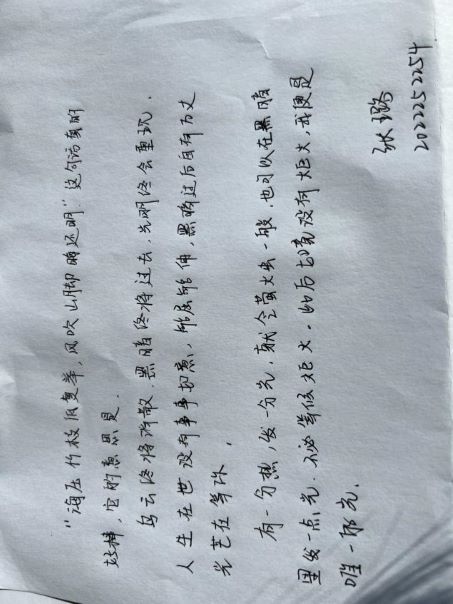 “海压竹枝低复举，风吹山脚晦还明”这句话真的
好棒，它的意思是。
乌云终将消散，黑暗终将过去，光明终会重现。
人生在世没有事事如意，能屈能伸，黑暗过后自有万丈
光芒在等你。
有一分热，发一分光，就令萤火虫一般，也可以在黑暗
里发一点光，不必等候炬火。此后如竟没有炬火，我便是
唯一的光。
张璐
2022252254